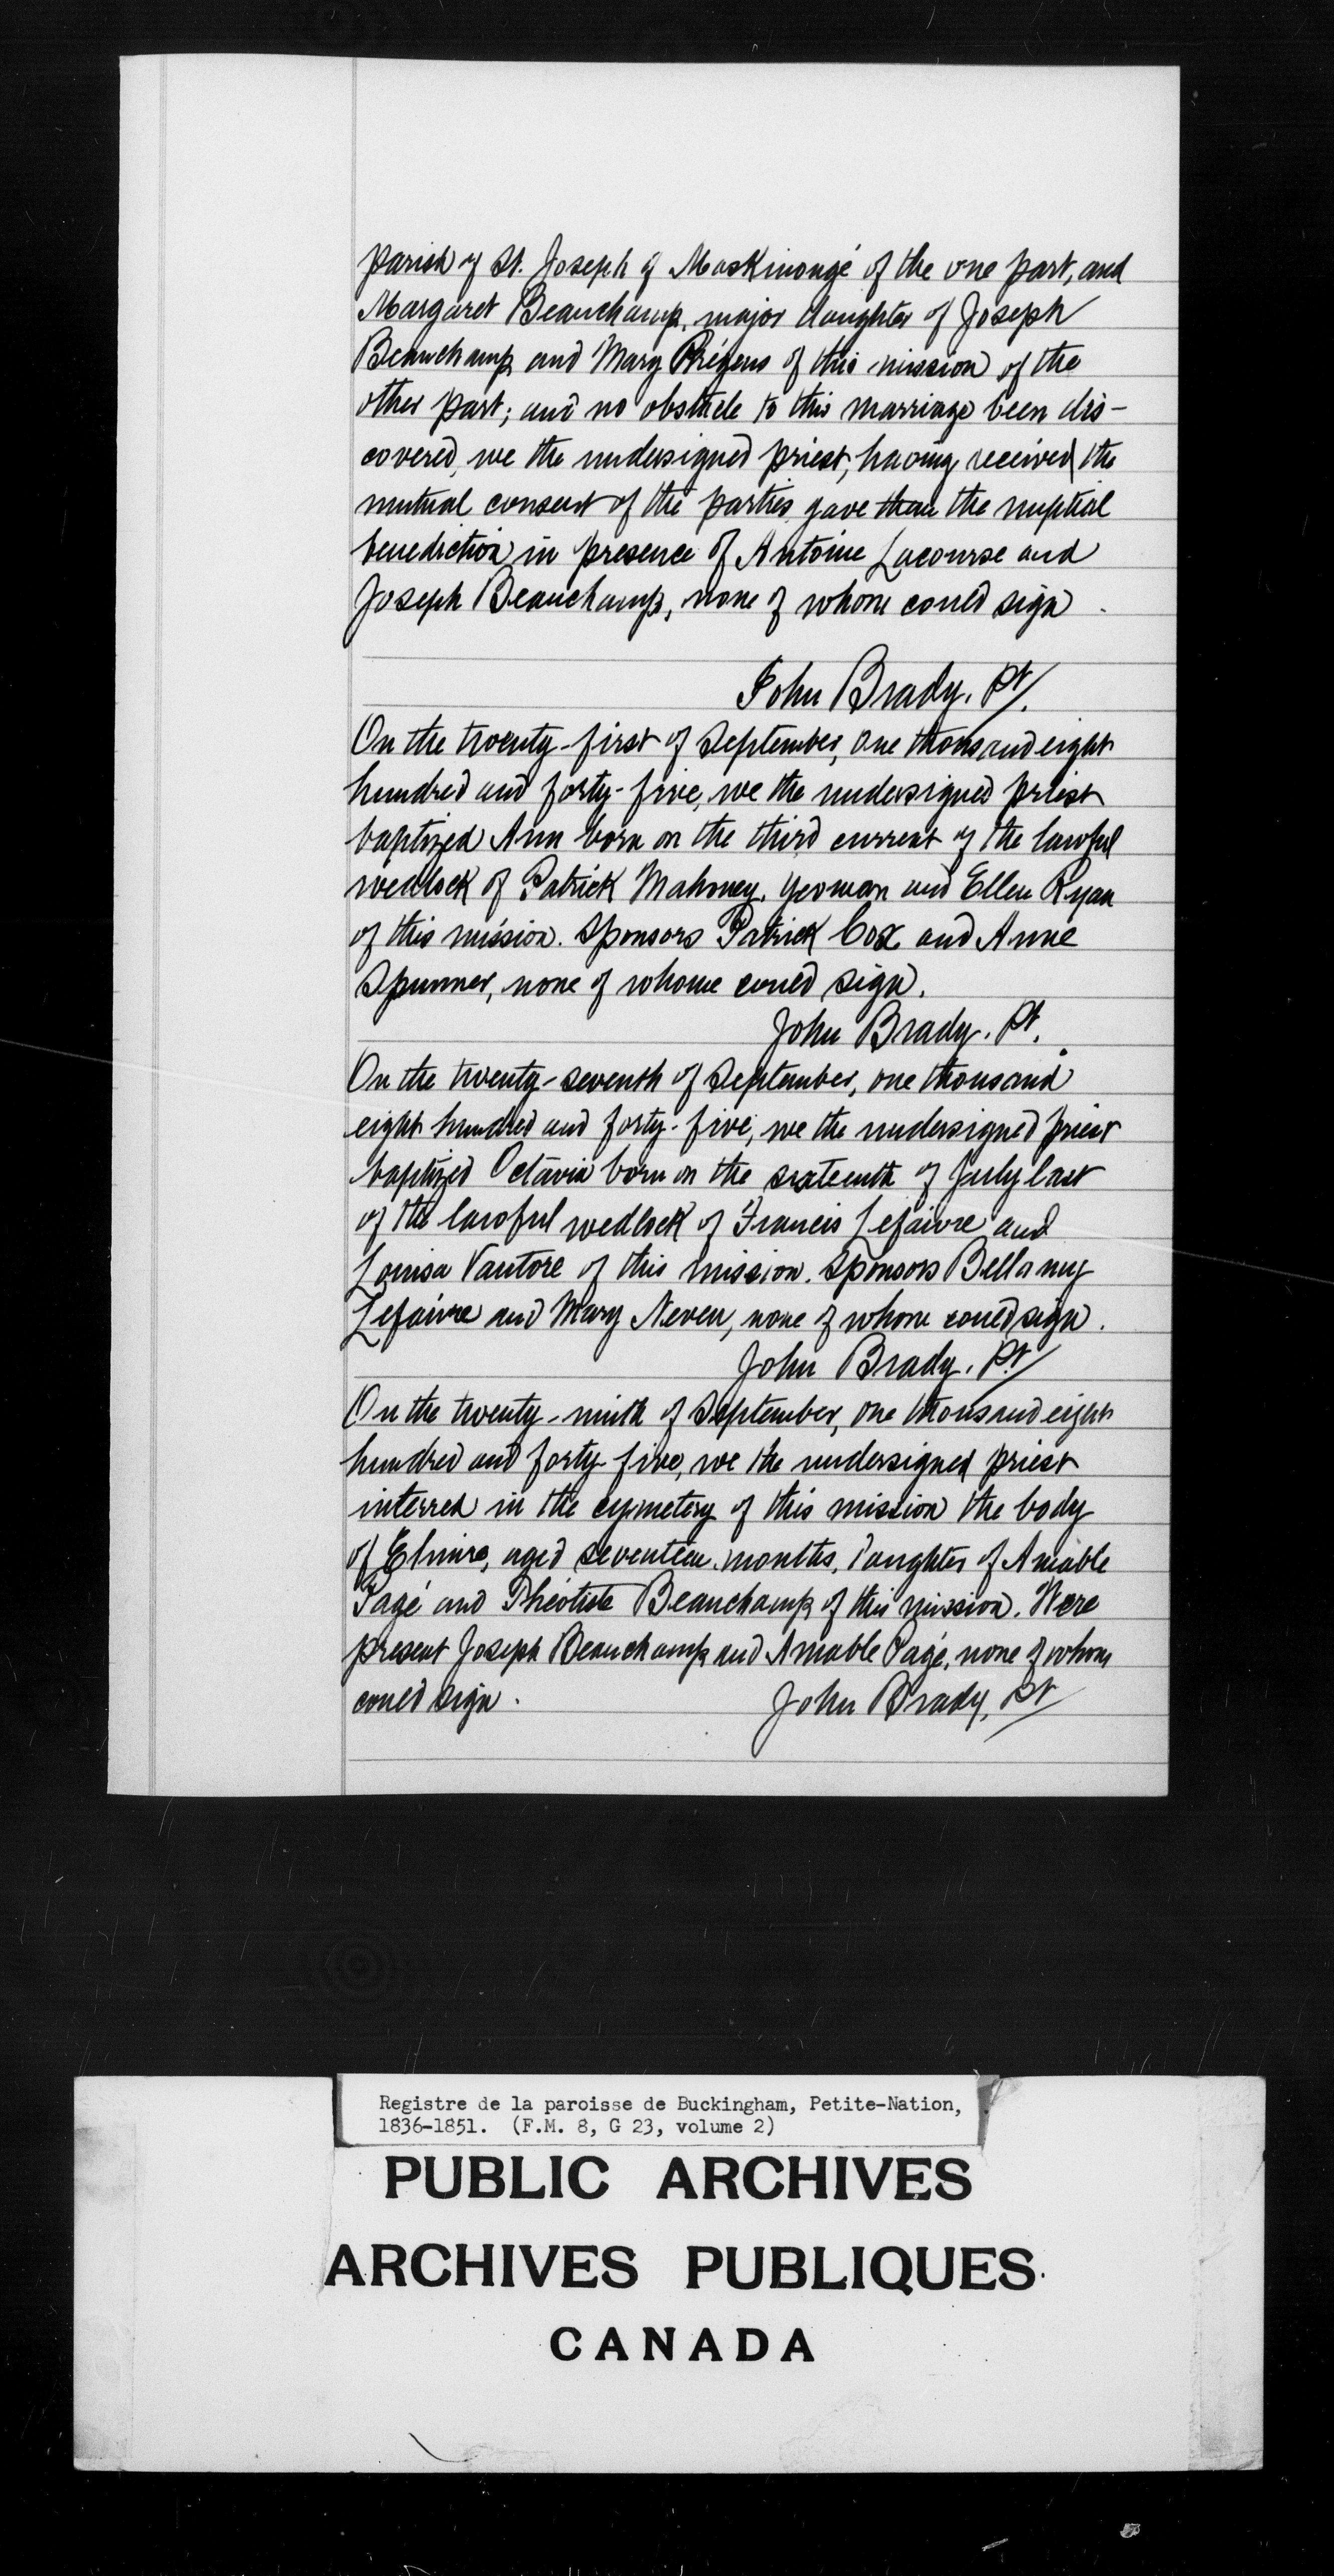 parish of St. Joseph of Maskinongé of the one part, and
Margaret Beauchamp, major daughter of Joseph
Beauchamp and Mary of this mission of the
other part; and no obstacle to this marriage been dis-
covered, we the undersigned priest, having received the
mutual consent of the parties gave them the nuptial
benediction in presence of Antoine Lacourse and
Joseph Beauchamp, none of whom could sign.
John Brady. Pt.
On the twenty-first of September, one thousand eight
hundred and forty-five, we the undersigned priest
baptized Ann born on the third current of the lawful
wedlock of Patrick Mahoney, yeoman and Ellen Ryan
of this mission. Sponsors Patrick Cox and Anne
none of whome could sign.
John Brady. Pt.
On the twenty-seventh of September, one thousand
eight hundred and forty-five, we the undersigned priest
baptized Octavia born on the sixteenth of July last
of the lawful wedlock of Francis Lefaivre and
Louisa Vantore of this mission. Sponsors Bellamy
Lefaivre and Mary Neven, none of whom could sign.
John Brady. Pt.
On the twenty-ninth of September, one thousand eight
hundred and forty-five, we the undersigned priest
interred in the cymetery of this mission the body
of Elmire, aged seventeen months, daughter of Amable
Pagé and Théotiste Beauchamp of this mission. Were
present Joseph Beauchamp and Amable Pagé, none of whom
could sign. John Brady, Pt
Registre de la paroisse de Buckingham, Petite-Nation,
1836-1851. (F.M. 8, G 23, volume 2)
PUBLIC ARCHIVES
ARCHIVES PUBLIQUES
CANADA